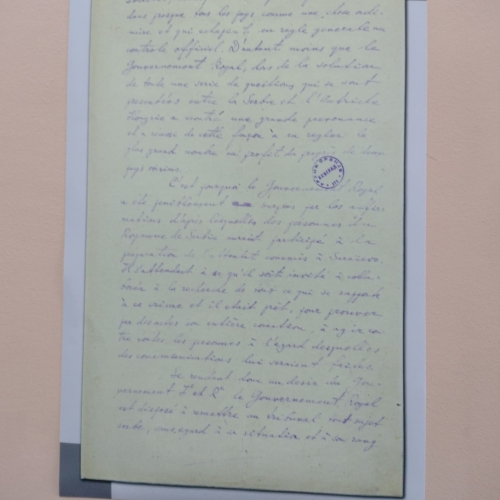 dans presque tous les pays comme une chose ordi-
naire et qui échappent en règle générale au
contrôle officiel. D'autant moins que le
Gouvernement Royal, lors de la solution
de toute une série de questions qui se sont
présentées entre la Serbie et l'Autriche
Hongrie a montré une grande prévenance
et a réussi de cette façon à en régler le
plus grand nombre au profit du progrès de deux
pays voisins.
C'est pourquoi le Gouvernement Royal
a été péniblement surpris par les affir-
mations d'après lesquelles des personnes du
Royaume de Serbie auraient participé à la
préparation de l'attentat commis à Sarajevo.
Il s'attendait à ce qu'il soit invité à colla-
borer à la recherche de tout ce qui se rapporte
à ce crime et il était prêt, pour prouver
par des actes son entière correction, à agir con-
tre toutes les personnes à l'égard desquelles
des communications lui seraient faites.
Se rendant donc au désir du Gou-
vernement I. et R. le Gouvernement Royal
est disposé à remettre au tribunal tout sujet
serbe, sans égard à sa situation et à son rang